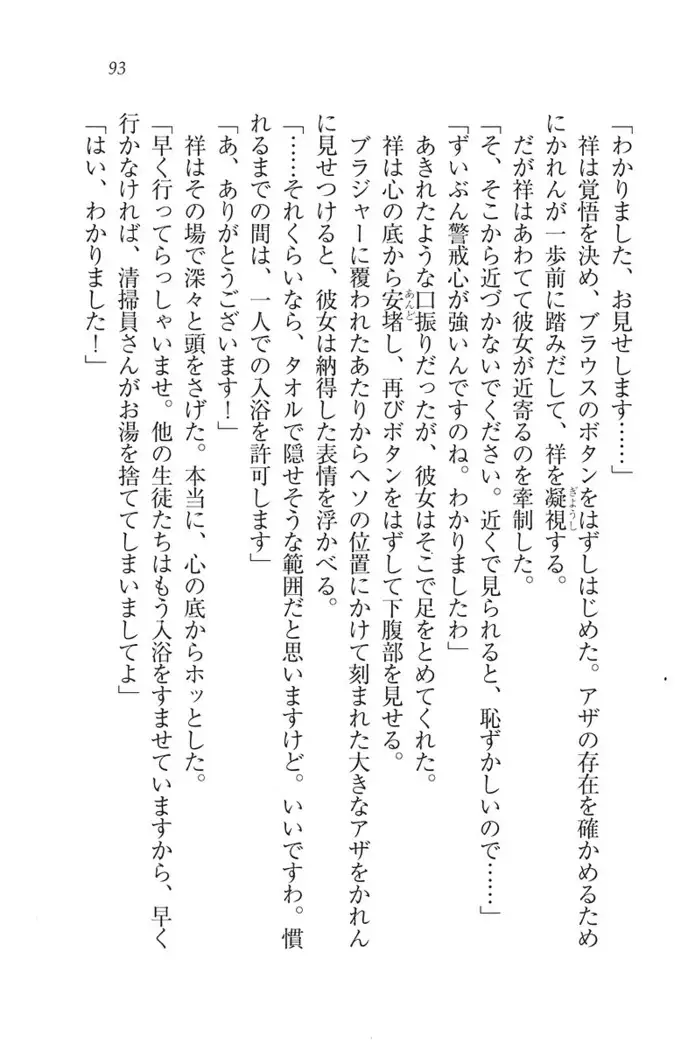 93
「わかりました、お見せします……」
　祥は覚悟を決め、ブラウスのボタンをはずしはじめた。アザの存在を確かめるため
にかれんが一歩前に踏みだして、祥を凝視する。
ぎょうし
　だが祥はあわてて彼女が近寄るのを牽制した。
「そ、そこから近づかないでください。近くで見られると、恥ずかしいので……」
「ずいぶん警戒心が強いんですのね。わかりましたわ」
　あきれたような口振りだったが、彼女はそこで足をとめてくれた。
　祥は心の底から安堵し、再びボタンをはずして下腹部を見せる。
あんど
　ブラジャーに覆われたあたりからヘソの位置にかけて刻まれた大きなアザをかれん
に見せつけると、彼女は納得した表情を浮かべる。
「……それくらいなら、タオルで隠せそうな範囲だと思いますけど。いいですわ。慣
れるまでの間は、一人での入浴を許可します」
「あ、ありがとうございます！」
　祥はその場で深々と頭をさげた。本当に、心の底からホッとした。
「早く行ってらっしゃいませ。他の生徒たちはもう入浴をすませていますから、早く
行かなければ、清掃員さんがお湯を捨ててしまいましてよ」
「はい、わかりました！」